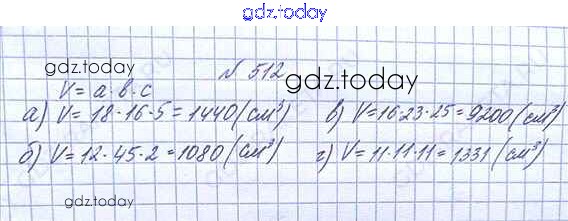 gdz.today
gdz.today
№ 512
gdz.today
V = a·b·c
а) V = 18·16·5 = 1440 (см³)
в) V = 16·23·25 = 9200 (см³)
б) V = 12·45·2 = 1080 (см³)
г) V = 11·11·11 = 1331 (см³)
gdz.today